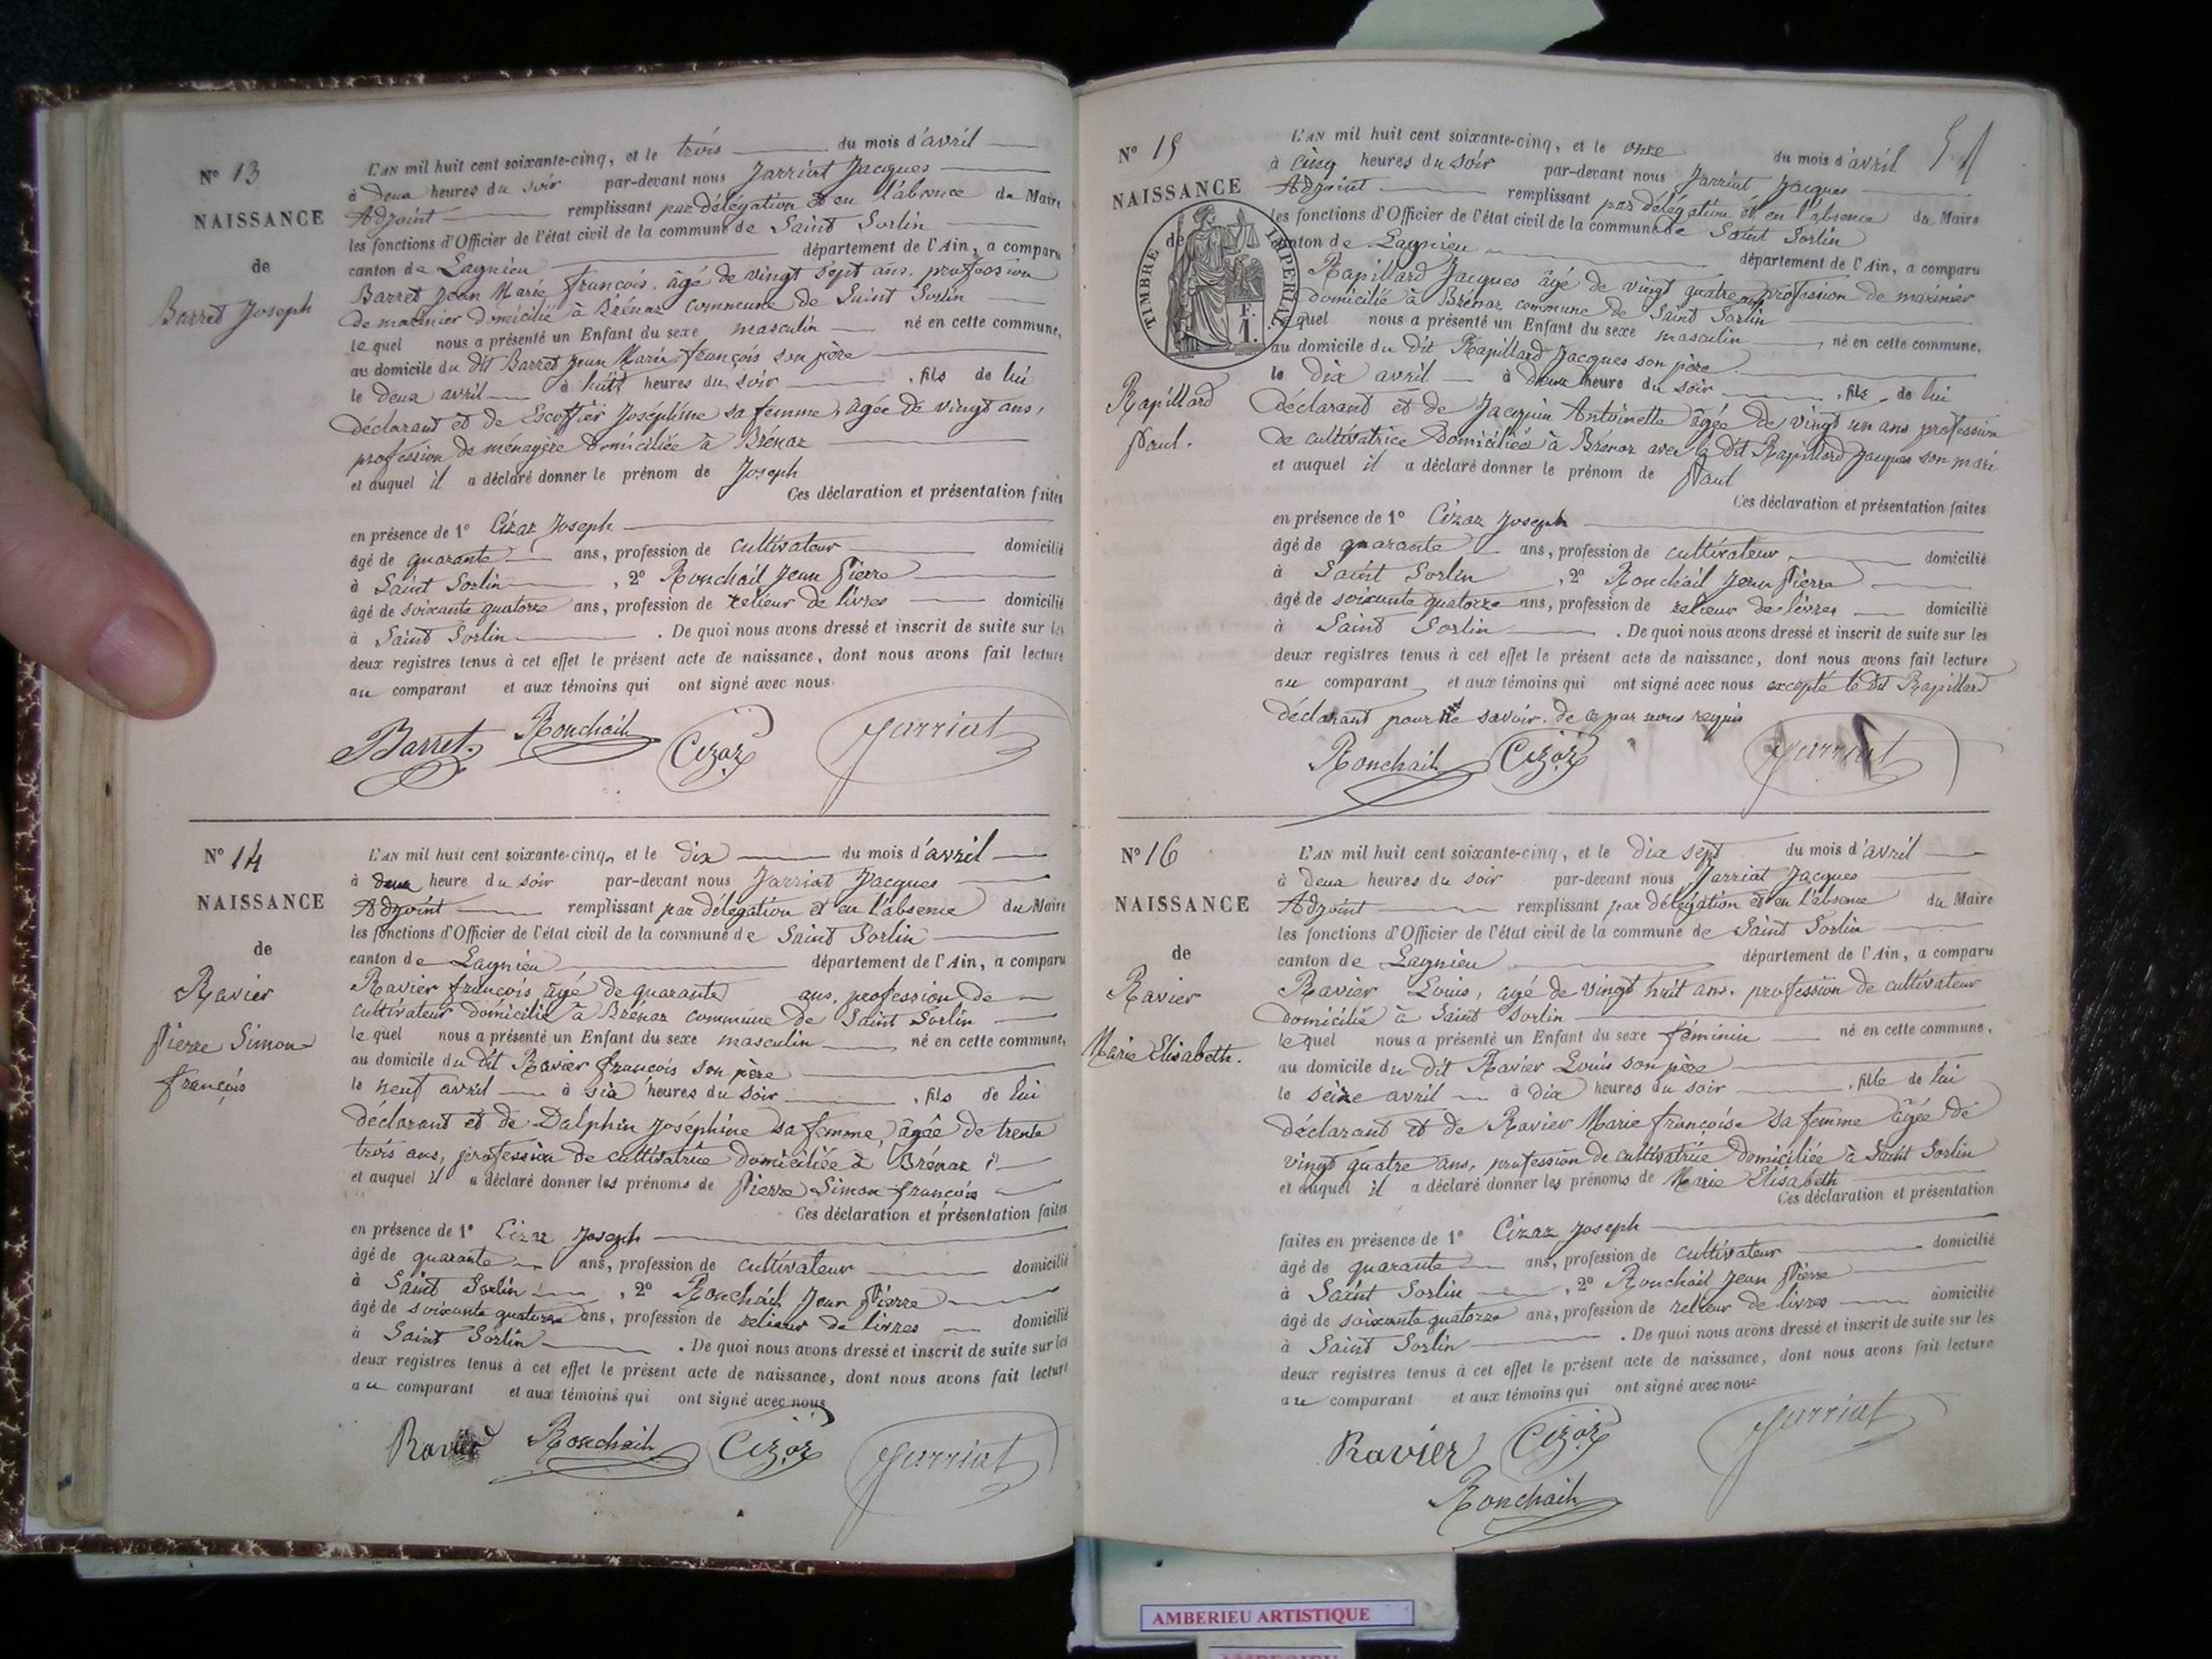 N° 13
NAISSANCE
de
Barret Joseph
L'AN mil huit cent soixante-cinq, et le trois du mois d'avril
à deux heures du soir par-devant nous Jarriat Jacques
Adjoint remplissant par délégation et en l'absence du Maire
les fonctions d'Officier de l'état civil de la commune de Saint Sorlin
canton de Lagnieu département de l'Ain, a comparu
Barret Jean Marie François, âgé de vingt sept ans, profession
de marinier domicilié à Brénaz commune de Saint Sorlin
lequel nous a présenté un Enfant du sexe masculin né en cette commune,
au domicile du dit Barret Jean Marie françois son père
le deux avril à huit heures du soir, fils de lui
déclarant et de Escoffier Joséphine sa femme, âgée de vingt ans,
profession de ménagère domiciliée à Brénaz
et auquel il a déclaré donner le prénom de Joseph
Ces déclaration et présentation faites
en présence de 1° Cizaz Joseph
âgé de quarante ans, profession de cultivateur domicilié
à Saint Sorlin, 2° Ronchail Jean Pierre
âgé de soixante quatorze ans, profession de relieur de livres domicilié
à Saint Sorlin. De quoi nous avons dressé et inscrit de suite sur les
deux registres tenus à cet effet le présent acte de naissance, dont nous avons fait lecture
au comparant et aux témoins qui ont signé avec nous.
Barret Ronchail Cizaz Jarriat
N° 14
NAISSANCE
de
Ravier
Pierre Simon
françois
L'AN mil huit cent soixante-cinq, et le dix du mois d'avril
à deux heure du soir par-devant nous Jarriat Jacques
Adjoint remplissant par délégation et en l'absence du Maire
les fonctions d'Officier de l'état civil de la commune de Saint Sorlin
canton de Lagnieu département de l'Ain, a comparu
Ravier françois âgé de quarante ans, profession de
cultivateur domicilié à Brénaz commune de Saint Sorlin
lequel nous a présenté un Enfant du sexe masculin né en cette commune,
au domicile du dit Ravier françois son père
le neuf avril à six heures du soir, fils de lui
déclarant et de Dalphin Joséphine sa femme, âgée de trente
trois ans, profession de cultivatrice domiciliée à Brénaz
et auquel il a déclaré donner les prénoms de Pierre Simon françois
Ces déclaration et présentation faites
en présence de 1° Cizaz Joseph
âgé de quarante ans, profession de cultivateur domicilié
à Saint Sorlin, 2° Ronchail Jean Pierre
âgé de soixante quatorze ans, profession de relieur de livres domicilié
à Saint Sorlin. De quoi nous avons dressé et inscrit de suite sur les
deux registres tenus à cet effet le présent acte de naissance, dont nous avons fait lecture
au comparant et aux témoins qui ont signé avec nous
Ravier Ronchail Cizaz Jarriat
51
N° 15
NAISSANCE
de
TIMBRE IMPERIAL
F. 1.
Rapillard
Paul.
L'AN mil huit cent soixante-cinq, et le onze du mois d'avril
à cinq heures du soir par-devant nous Jarriat Jacques
Adjoint remplissant par délégation et en l'absence du Maire
les fonctions d'Officier de l'état civil de la commune de Saint Sorlin
canton de Lagnieu département de l'Ain, a comparu
Rapillard Jacques âgé de vingt quatre ans profession de marinier
domicilié à Brénaz commune de Saint Sorlin
lequel nous a présenté un Enfant du sexe masculin, né en cette commune,
au domicile du dit Rapillard Jacques son père
le dix avril à deux heure du soir, fils de lui
déclarant et de Jacquin Antoinette âgée de vingt un ans profession
de cultivatrice domiciliée à Brénaz avec le dit Rapillard Jacques son mari
et auquel il a déclaré donner le prénom de Paul
Ces déclaration et présentation faites
en présence de 1° Cizaz Joseph
âgé de quarante ans, profession de cultivateur domicilié
à Saint Sorlin, 2° Ronchail Jean Pierre
âgé de soixante quatorze ans, profession de relieur de livres domicilié
à Saint Sorlin. De quoi nous avons dressé et inscrit de suite sur les
deux registres tenus à cet effet le présent acte de naissance, dont nous avons fait lecture
au comparant et aux témoins qui ont signé avec nous excepté le dit Rapillard
déclarant pour ne savoir, de ce par nous requis
Ronchail Cizaz Jarriat
N° 16
NAISSANCE
de
Ravier
Marie Elisabeth.
L'AN mil huit cent soixante-cinq, et le dix sept du mois d'avril
à deux heures du soir par-devant nous Jarriat Jacques
Adjoint remplissant par délégation et en l'absence du Maire
les fonctions d'Officier de l'état civil de la commune de Saint Sorlin
canton de Lagnieu département de l'Ain, a comparu
Ravier Louis, âgé de vingt huit ans, profession de cultivateur
domicilié à Saint Sorlin
lequel nous a présenté un Enfant du sexe féminin né en cette commune,
au domicile du dit Ravier Louis son père
le seize avril à dix heures du soir, fille de lui
déclarant et de Ravier Marie françoise sa femme âgée de
vingt quatre ans, profession de cultivatrice domiciliée à Saint Sorlin
et auquel il a déclaré donner les prénoms de Marie Elisabeth
Ces déclaration et présentation
faites en présence de 1° Cizaz Joseph
âgé de quarante ans, profession de cultivateur domicilié
à Saint Sorlin, 2° Ronchail Jean Pierre
âgé de soixante quatorze ans, profession de relieur de livres domicilié
à Saint Sorlin. De quoi nous avons dressé et inscrit de suite sur les
deux registres tenus à cet effet le présent acte de naissance, dont nous avons fait lecture
au comparant et aux témoins qui ont signé avec nous
Ravier Cizaz Jarriat
Ronchail
AMBERIEU ARTISTIQUE
AMBERIEU